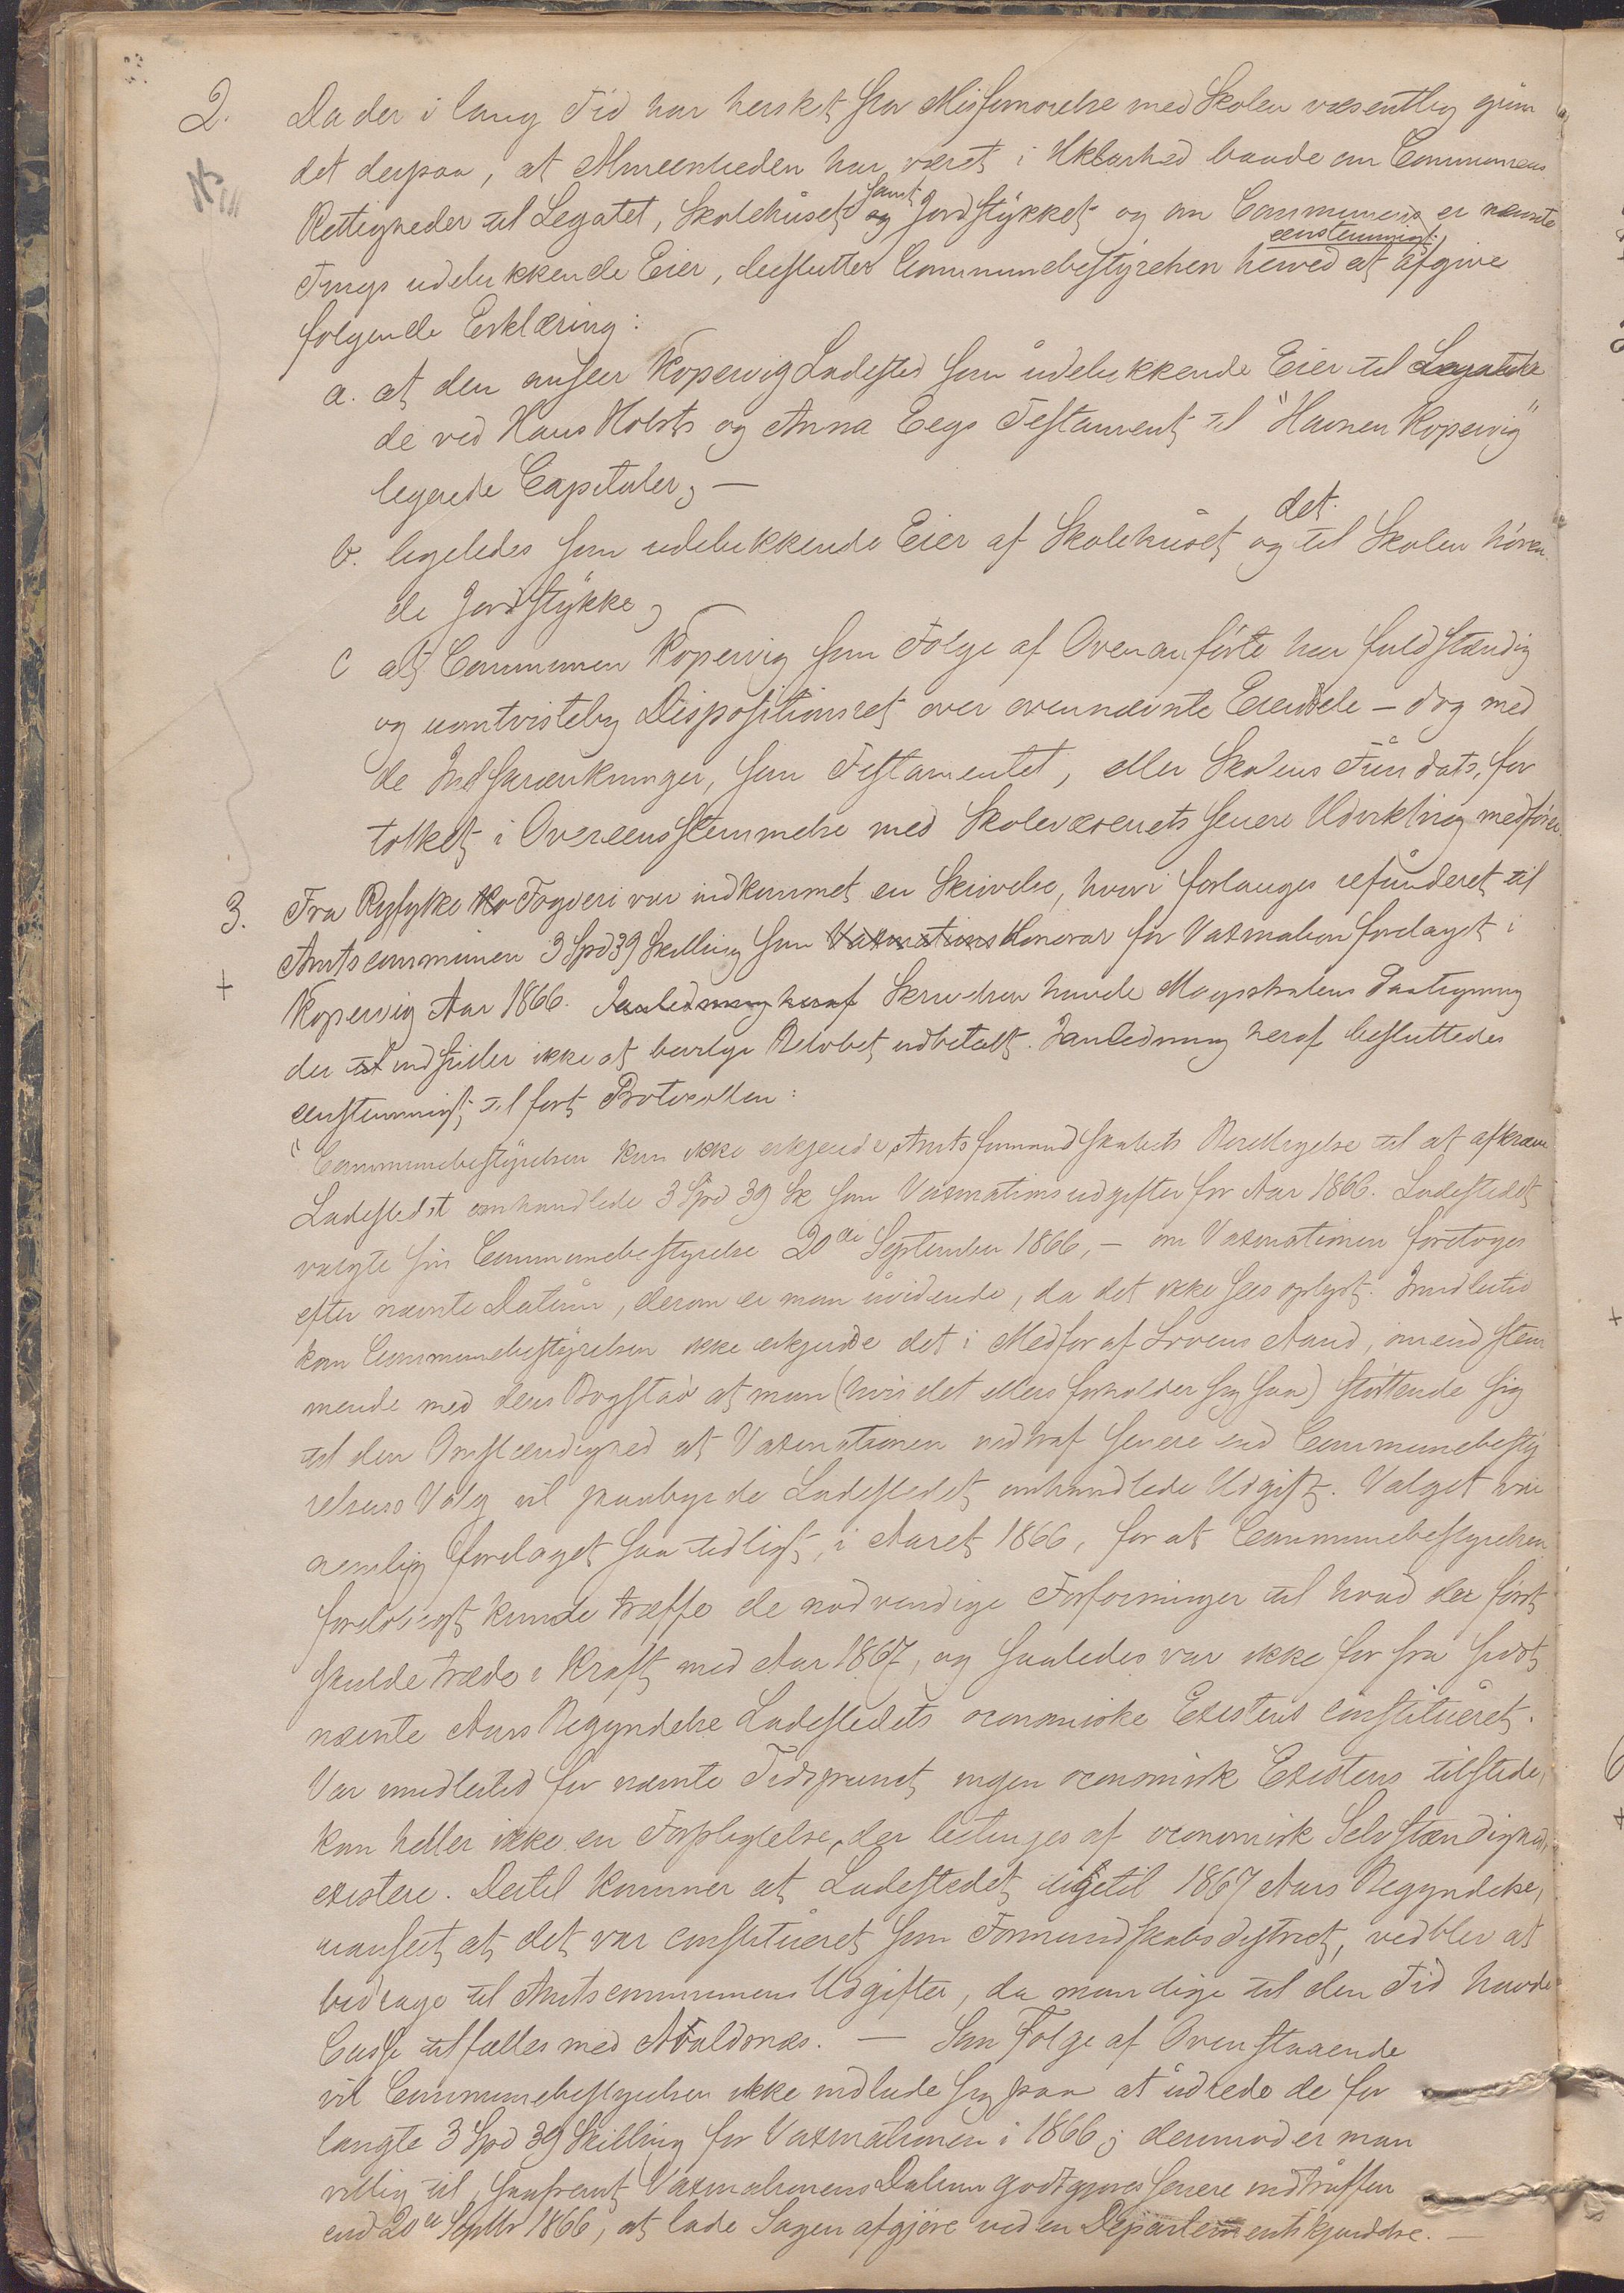 2. Da der i lang Tid har hersket stor Misfornøielse med Skolen væsentlig grun
det derpaa, at Almeenheden har været i Uklarhed baade om Communens
Rettigheder til Legatet, Skolehuset samt og Jordstykket og om Communen er nævnte
Tings udelukkende Eier, beslutter Communebestyrelsen herved eenstemmigt at afgive
følgende Erklæring:
a. at den anseer Kopervig Ladested som udelukkende Eier til Legatets
de ved Hans Holsts og Anna Eegs Testament til "Havnen Kopervig"
legerede Capitaler, —
b. ligeledes som udelukkende Eier af Skolehuset og det til Skolen høren
de Jordstykke,
c at Communen Kopervig som Følge af Ovenanførte har fuldstændig
og uomtvistelig Dispositionsret over ovennævnte Eiendele – dog med
de Indskrænkninger, som Testamentet, eller Skolens Fundats, for
tolket i Overeensstemmelse med Skolevæsenets senere Udvikling medfører.
3. Fra Ryfylke Ko Fogderi var indkommet en Skrivelse, hvori forlanges refunderet til
+ Amtscommunen 3 Spd 39 Skilling som Vaxinations Honorar for Vaxination foretaget i
Kopervig Aar 1866. I anledning heraf Skrivelsen havde Magistratens Paategning
der til indstiller ikke at bevilge Beløbet udbetalt. I anledning heraf besluttedes
eenstemmigt til ført Protocollen:
"Communebestyrelsen kan ikke erkjende Amtsformandskabets Berettigelse til at afkræve
Ladestedet omhandlede 3 Spd 39 Sk som Vaxinationsudgifter for Aar 1866. Ladestedet
valgte sin Communebestyrelse 20de September 1866, – om Vaxinationen foretoges
efter nævnte Datum, derom er man uvidende, da det ikke sees oplyst. Imidlertid
kan Communebestyrelsen ikke erkjende det i Medfør af Lovens Aand, omend stem
mende med dens Bogstav at man (hvis det ellers forholder sig saa) støttende sig
til den Omstændighed at Vaxinationen indtraf senere end Communebesty
relsens Valg vil paabyrde Ladestedet omhandlede Udgift. Valget var
nemlig foretaget saa tidligt, i Aaret 1866, for at Communebestyrelsen
foreløbigt kunde træffe de nødvendige Forføininger til hvad der først
skulde træde i Kraft med Aar 1867, og saaledes var ikke før fra sidst
nævnte Aars Begyndelse Ladestedets oconomiske Existens constitueret.
Var imidlertid før nævnte Tidspunct ingen oconomisk Existens tilstede,
kan heller ikke en Forpligtelse, der betinges af oconomisk Selvstændighed,
existere. Dertil kommer at Ladestedet ligetil 1867 Aars Begyndelse,
uanseet at det var constitueret som Formandskabsdistrict, vedblev at
bidrage til Amtscommunens Udgifter, da man lige til den Tid havde
Casse tilfælles med Avaldsnæs. — Som Følge af Ovenstaaende
vil Communebestyrelsen ikke indlade sig paa at udrede de for
langte 3 Spd 39 Skilling for Vaxinationen i 1866; derimod er man
villig til, saafremt Vaxinationens Datum godtgjøres senere indtruffen
end 20de Septbr 1866, at lade Sagen afgjøre ved en Departementskjendelse. —